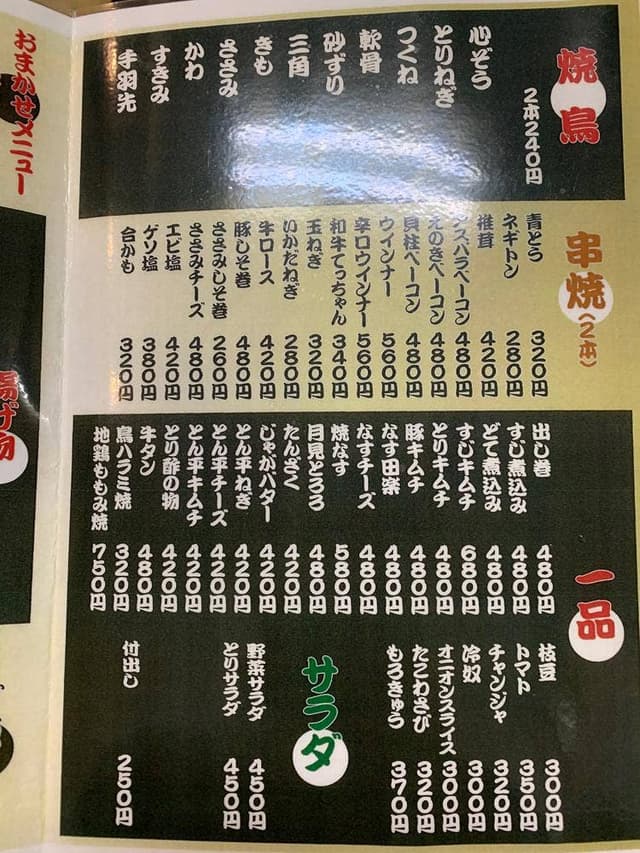 焼鳥
2本240円
心ぞう
とりねぎ
つくね
軟骨
砂ずり
三角
きも
ささみ
かわ
すきみ
手羽先
串焼(2本)
青とう 320円
ネギトン 280円
椎茸 420円
アスパラベーコン 480円
えのきベーコン 480円
貝柱ベーコン 480円
ウインナー 560円
辛口ウインナー 560円
和牛てっちゃん 340円
玉ねぎ 320円
いかだねぎ 280円
牛ロース 420円
豚しそ巻 480円
ささみしそ巻 260円
ささみチーズ 480円
エビ塩 420円
ゲソ塩 380円
合かも 320円
一品
出し巻 480円
すじ煮込み 480円
どて煮込み 480円
すじキムチ 680円
とりキムチ 480円
豚キムチ 480円
なす田楽 480円
なすチーズ 480円
焼なす 580円
月見とろろ 480円
たんざく 420円
じゃがバター 420円
とん平ねぎ 420円
とん平チーズ 420円
とん平キムチ 420円
とり酢の物 420円
牛タン 480円
鳥ハラミ焼 320円
地鶏ももみ焼 750円
枝豆 300円
トマト 350円
チャンジャ 320円
冷奴 300円
オニオンスライス 300円
たこわさび 320円
もろきゅう 370円
サラダ
野菜サラダ 450円
とりサラダ 450円
付出し 250円
おまかせメニュー
揚げ物